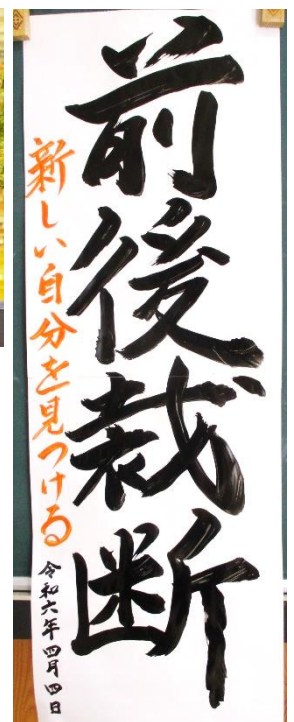 前後裁断
新しい自分を見つける
令和六年四月四日